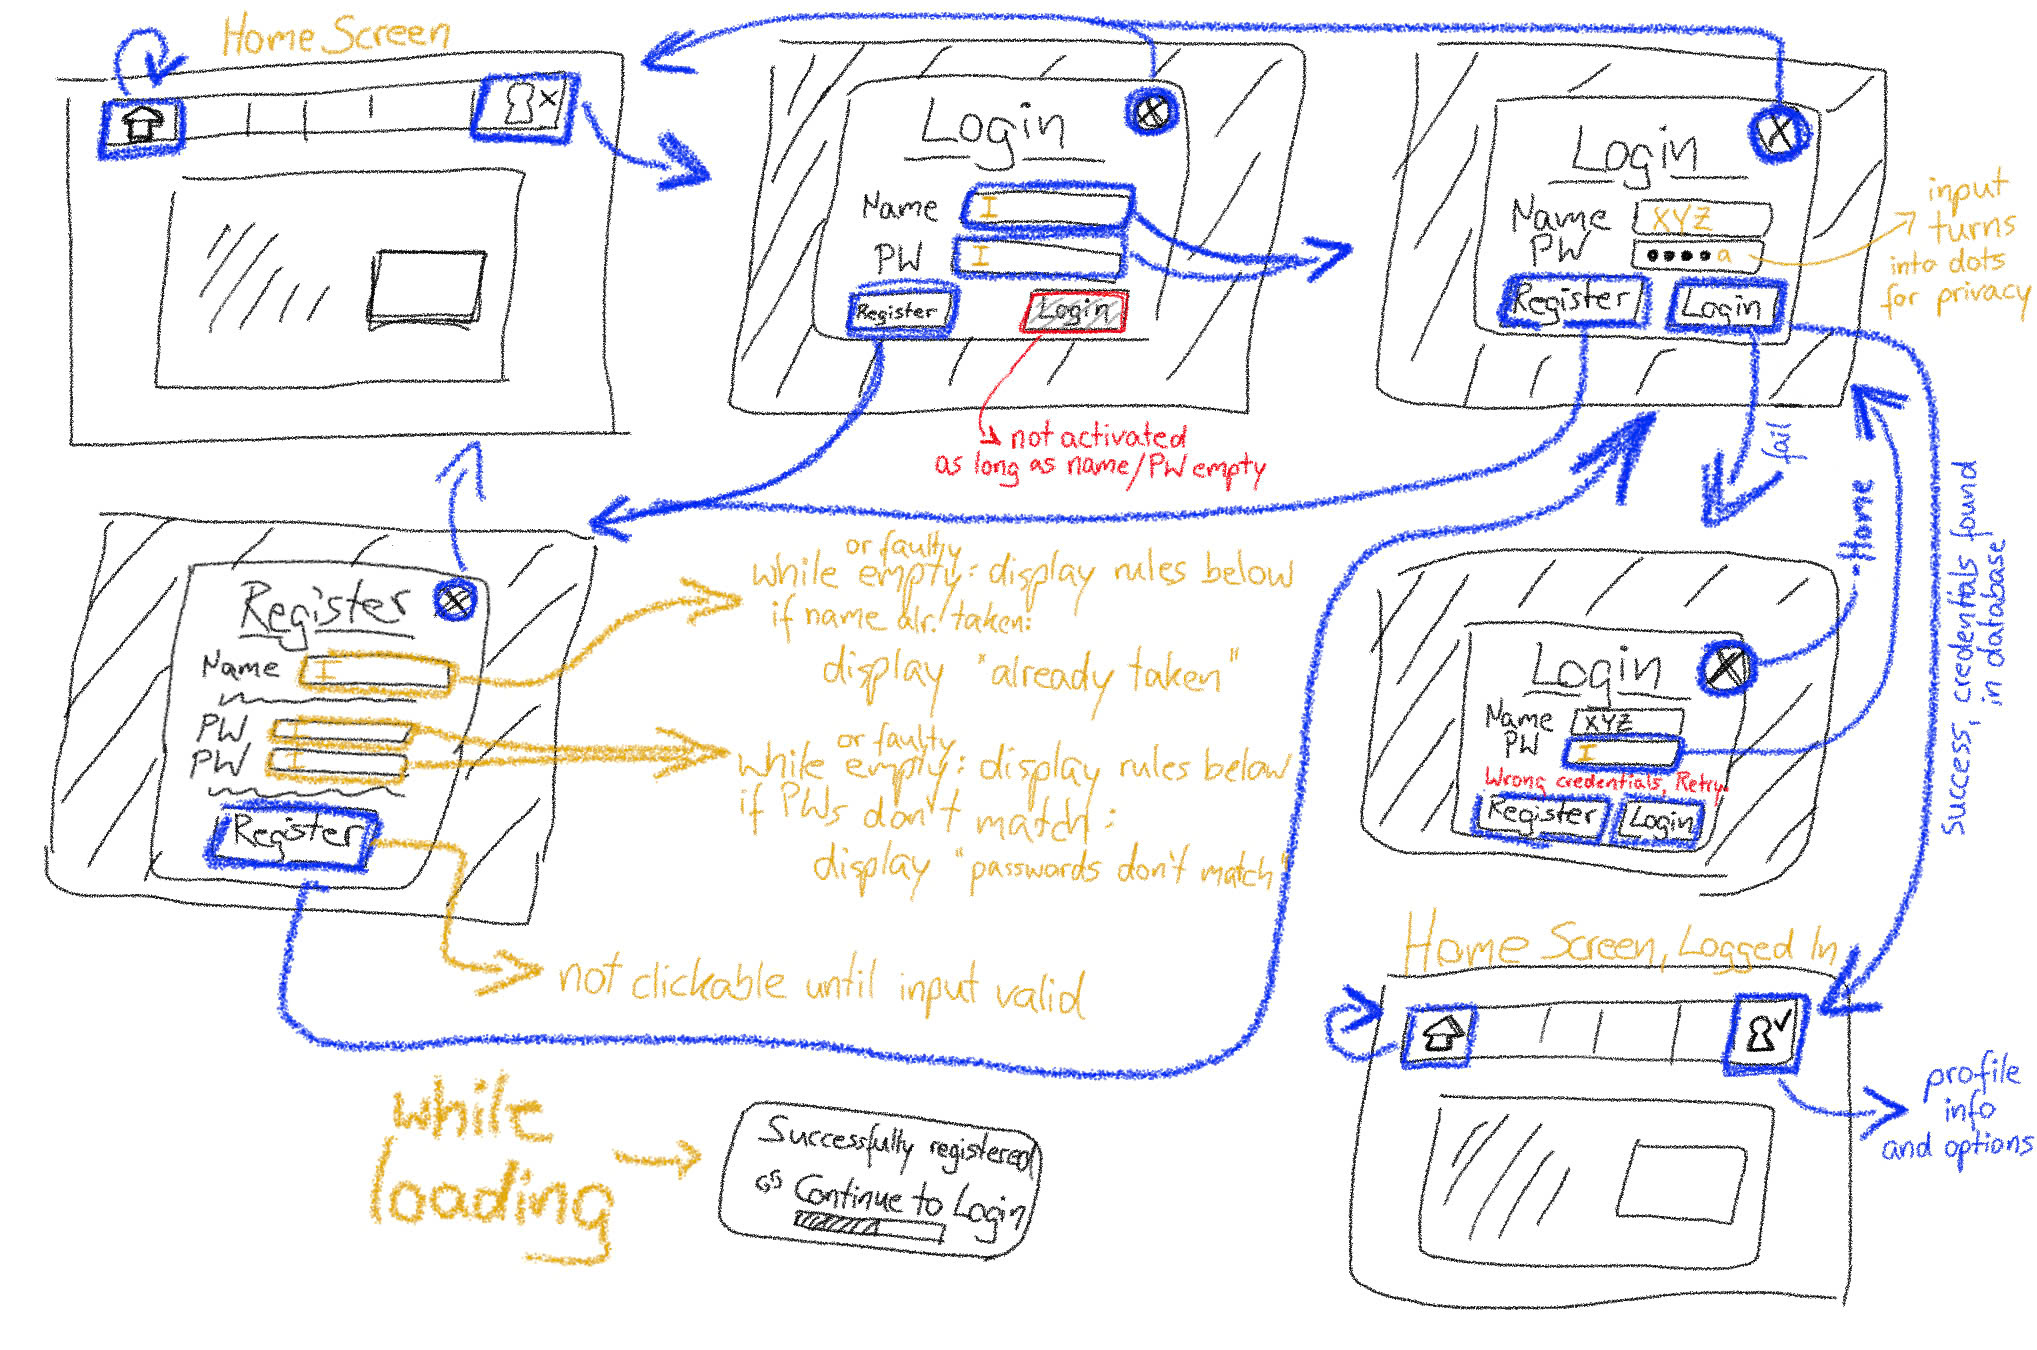 Home Screen
Login
Name
I
PW
I
Register
Login
not activated
as long as name/PW empty
Login
Name
XYZ
PW
a
Register
Login
input
turns
into dots
for privacy
fail
Home
Success, credentials found
in database
Register
Name
I
PW
I
PW
I
Register
or faulty
while empty: display rules below
if name alr. taken:
display "already taken"
or faulty
while empty: display rules below
if PWs don't match:
display "passwords don't match"
not clickable until input valid
Login
Name
XYZ
PW
I
Wrong credentials, Retry
Register
Login
Home Screen, Logged In
profile
info
and options
while
loading
Successfully registered
Continue to Login